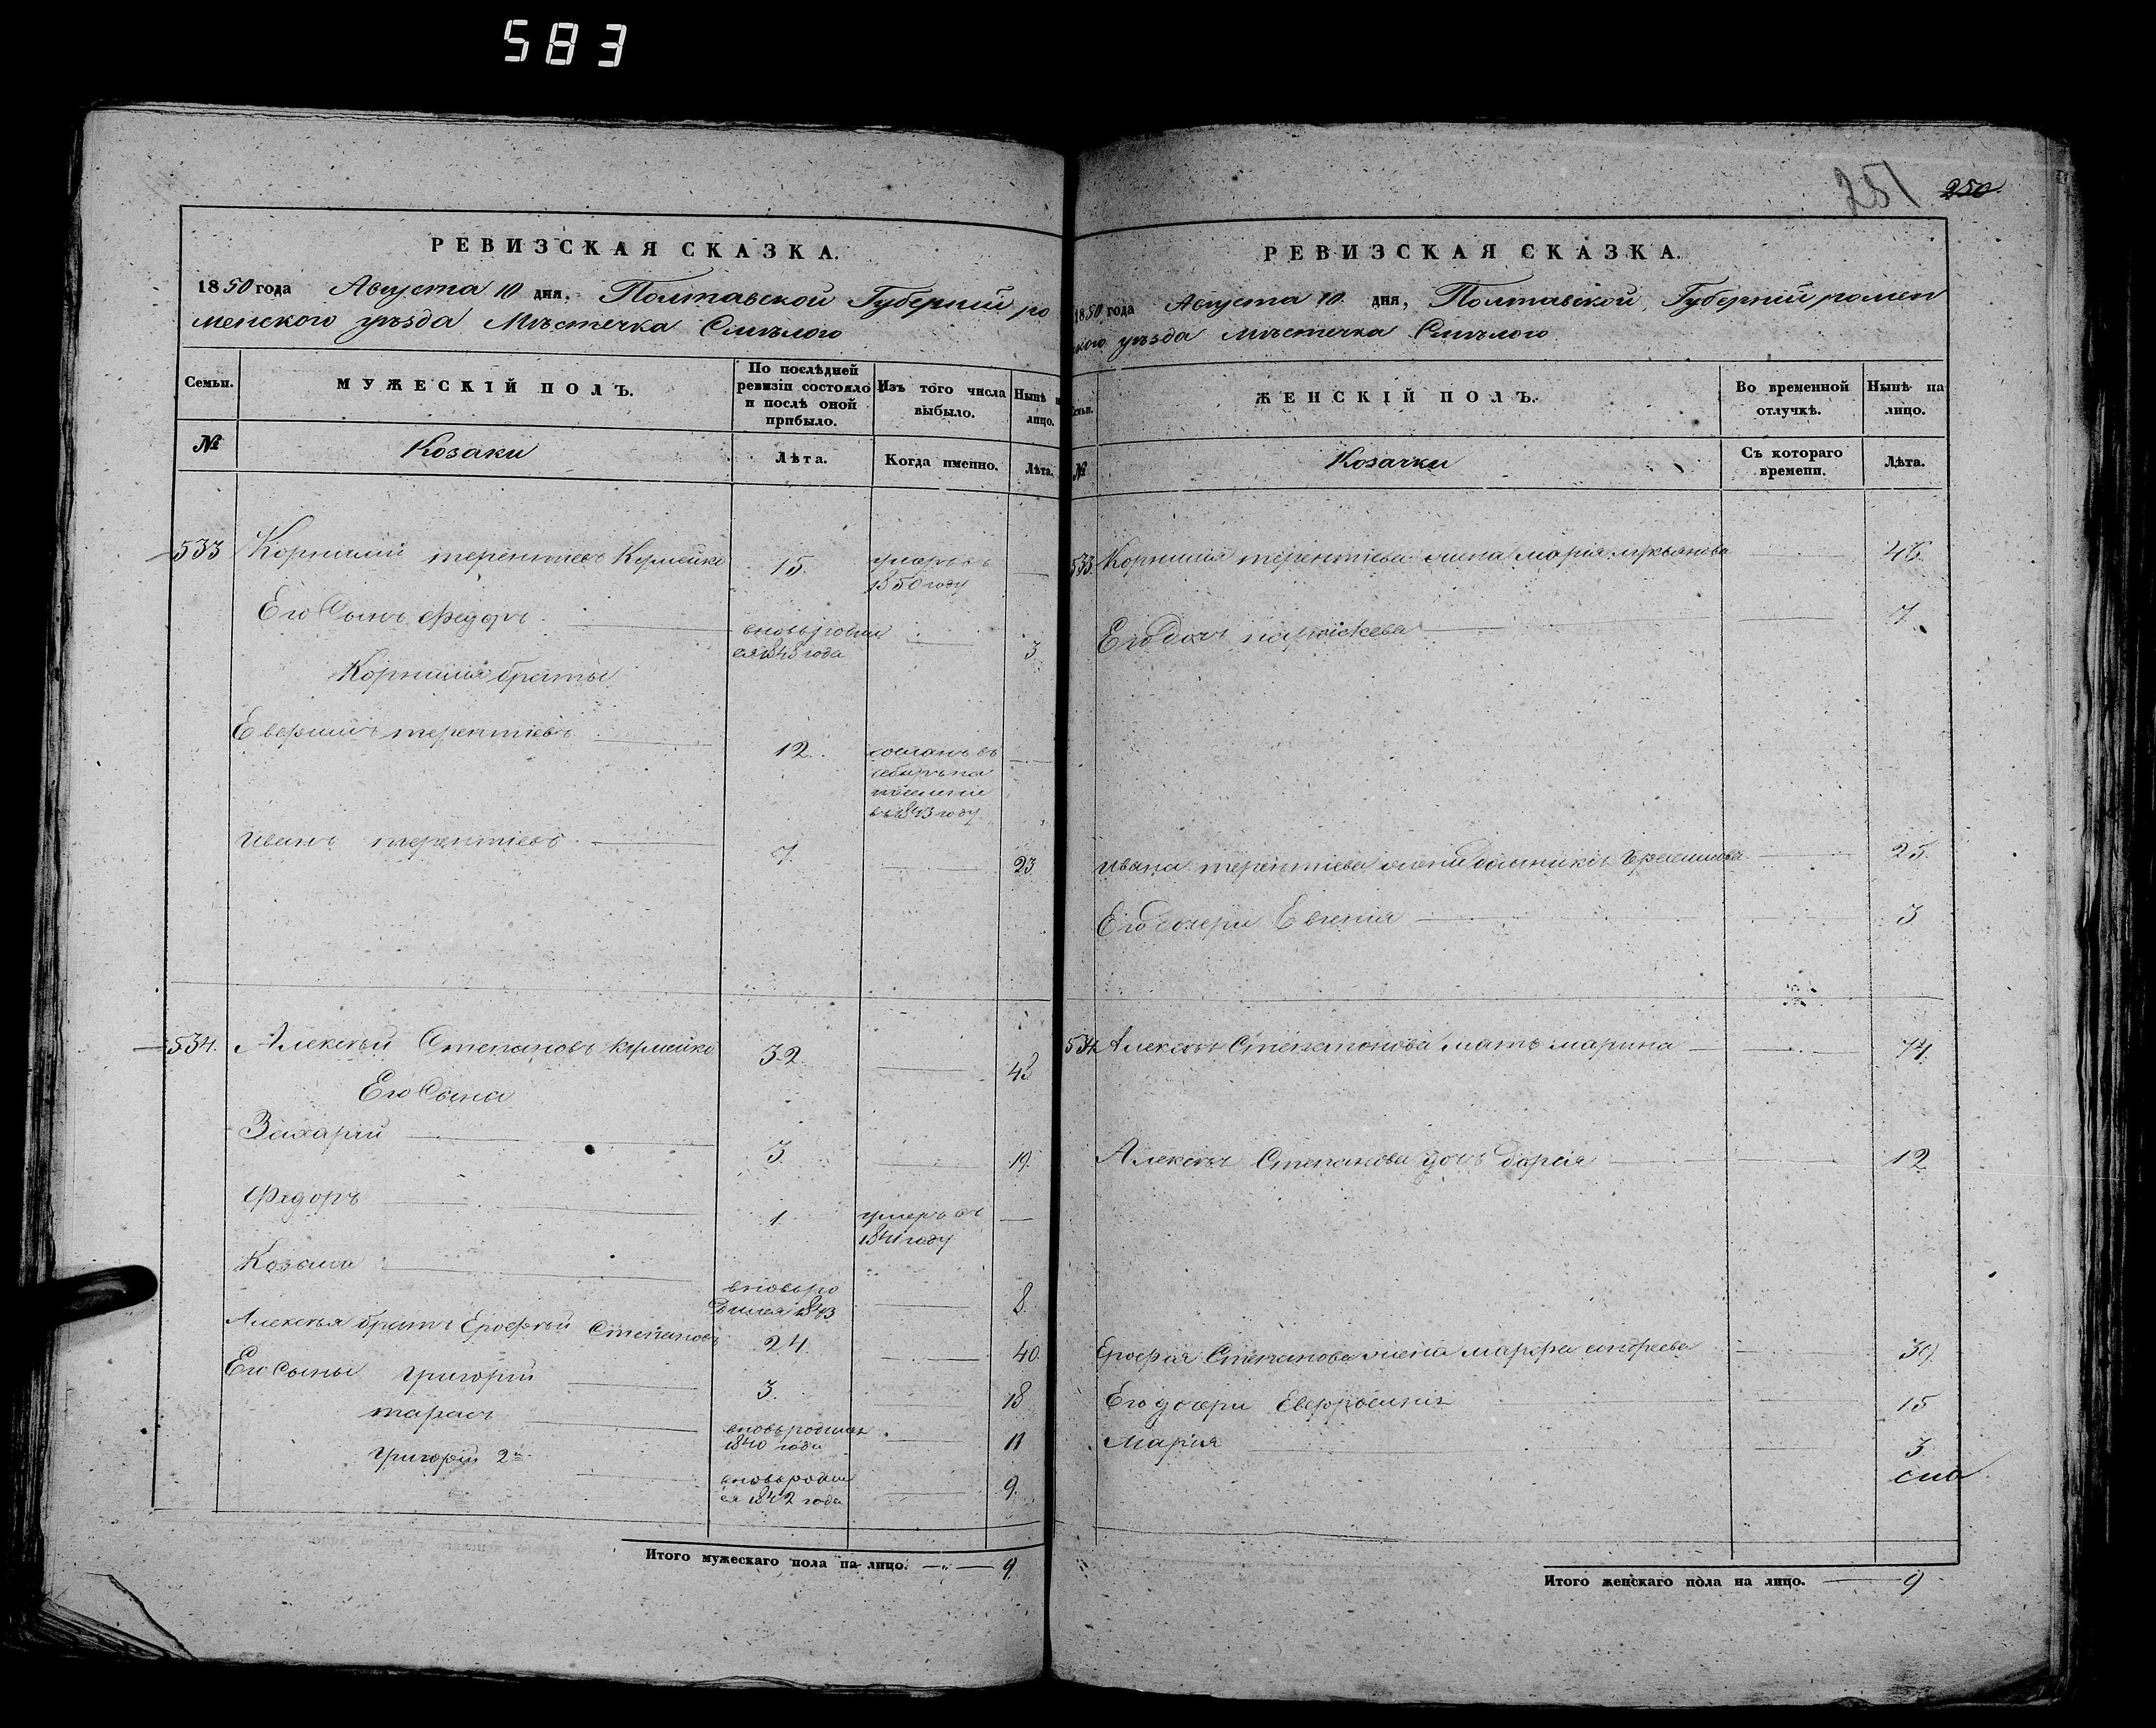 583
251 250
РЕВИЗСКАЯ СКАЗКА.
1850 года Августа 10 дня, Полтавской Губерніи ро
менского уѣзда Мѣстечка Смѣлого
Семьи. МУЖЕСКІЙ ПОЛЪ. По послѣдней ревизіи состояло и послѣ оной прибыло. Изъ того числа выбыло. Нынѣ на лицо.
№ Козаки Лѣта. Когда именно. Лѣта.
533 Корнилій терентіевъ 15. умеръ въ
1850 году
Его Сынъ Федоръ вновьродил
ся 1848 года 3
Корнилія браты
терентіевъ 12. сосланъ въ
сибирь на
поселеніе
въ 1843 году
Иванъ терентіевъ 7. 23.
534. Алексѣй Степановъ 32
Его Сына
Захарій 3. 19.
Федоръ 1. умеръ въ
1841 году
Козьма вновьро
дился 1843 8.
Алексѣя братъ Ерофѣй Степановъ 24 40.
Его сыны Григорій 3. 18
тарасъ вновьродился
1840 года 11
Григорій 2й вновьродил
ся 1842 года 9.
Итого мужескаго пола на лицо. 9.
РЕВИЗСКАЯ СКАЗКА.
1850 года Августа 10. дня, Полтавской Губерніи ромен
ского уѣзда Мѣстечка Смѣлого
Семьи. ЖЕНСКІЙ ПОЛЪ. Во временной отлучкѣ. Нынѣ на лицо.
№ Козачки Съ котораго времени. Лѣта.
533. Корнилія терентіева жена марія
Его доч параскева 7.
Ивана терентіева жена 25.
Его дочери Евгенія 3
534 Алексѣя Степанова мать марина 74.
Алексѣя Степанова дочь дарія 12
Ерофея Степанова жена марфа андреева 39.
Его дочери Евфросинія 15
Марія 3
Итого женскаго пола на лицо. 9